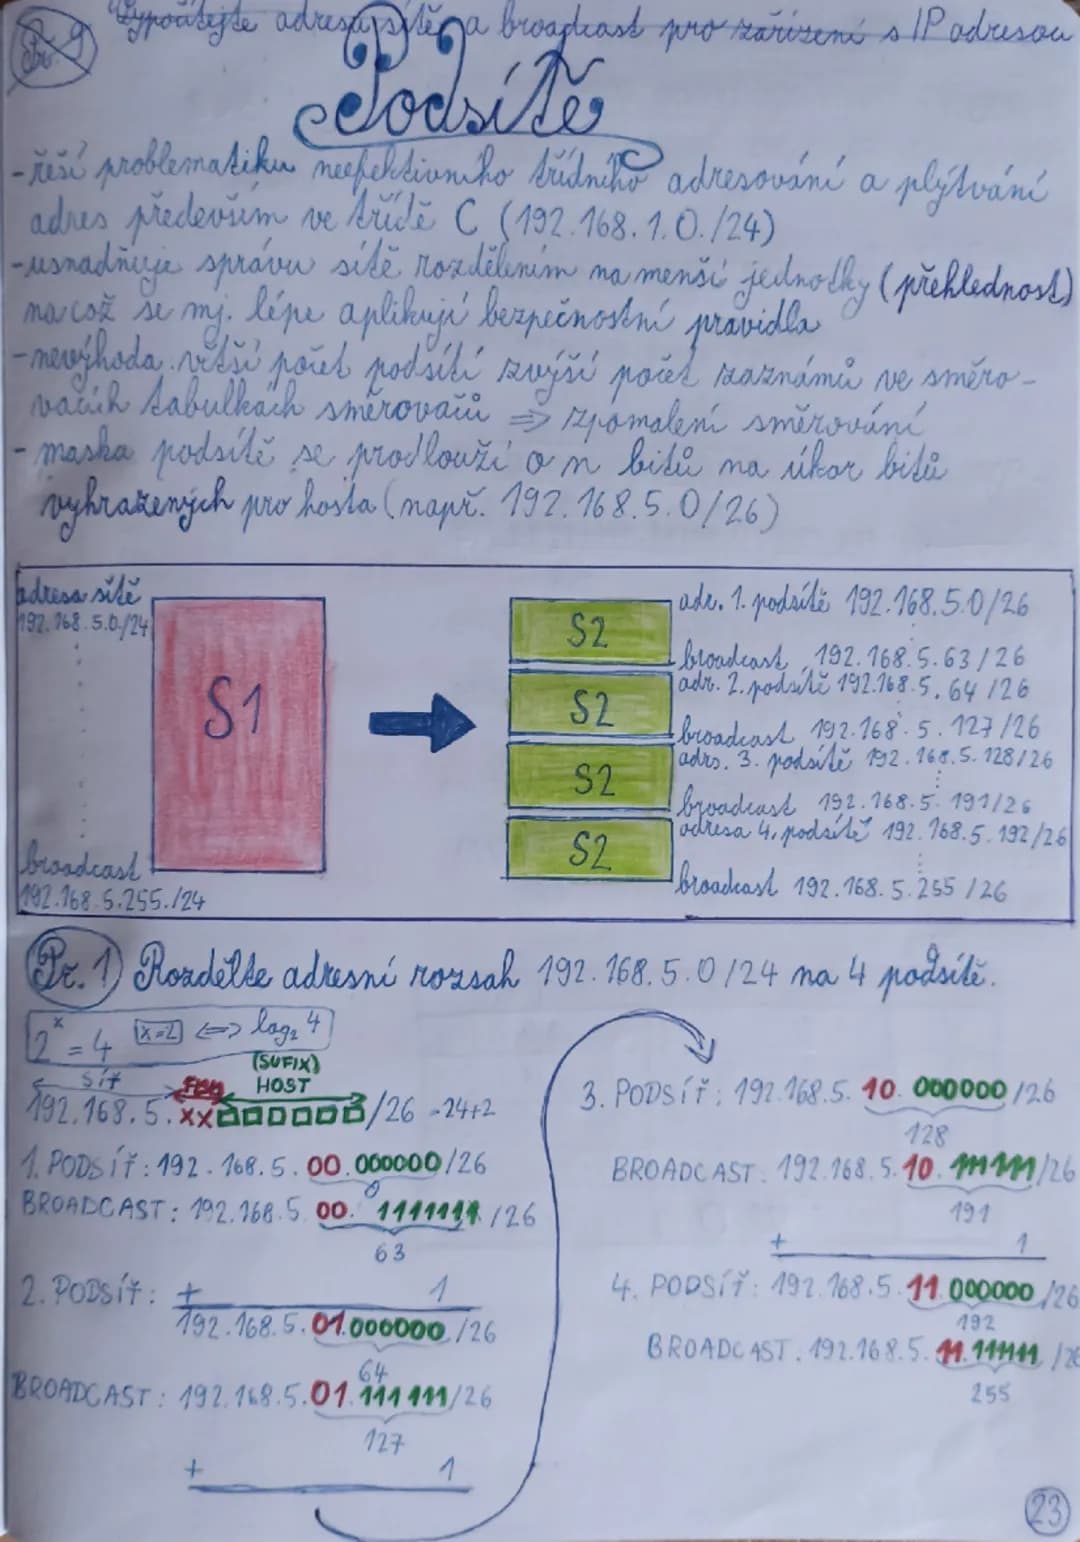 Př. 9 Vypočítejte adresu sítě a broadcast pro zařízení s IP adresou
Podsítě
-řeší problematiku neefektivního třídního adresování a plýtvání
adres především ve třídě C (192.168.1.0./24)
-usnadňuje správu sítě rozdělením na menší jednotky (přehlednost)
na což se mj. lépe aplikují bezpečnostní pravidla
-nevýhoda: větší počet podsítí zvýší počet záznamů ve směro-
vacích tabulkách směrovačů => zpomalení směrování
- maska podsítě se prodlouží o n bitů na úkor bitů
vyhrazených pro hosta (např. 192.168.5.0/26)
adresa sítě
192.168.5.0/24
S1
broadcast
192.168.5.255./24
S2
adr. 1. podsítě 192.168.5.0/26
broadcast 192.168.5.63/26
S2
adr. 2. podsítě 192.168.5.64/26
broadcast 192.168.5.127/26
S2
adrs. 3. podsítě 192.168.5.128/26
broadcast 192.168.5.191/26
S2
adresa 4. podsítě 192.168.5.192/26
broadcast 192.168.5.255/26
Př. 1 Rozdělte adresní rozsah 192.168.5.0/24 na 4 podsítě.
2^x = 4 x=2 <=> log₂ 4
(SUFIX)
SÍŤ HOST
192.168.5.xx□□□□□□/26 =24+2
1. PODSÍŤ: 192.168.5.00.000000/26
0
BROADCAST: 192.168.5.00.1111111/26
63
2. PODSÍŤ: + 1
192.168.5.01.000000/26
64
BROADCAST: 192.168.5.01.111111/26
127
+ 1
3. PODSÍŤ: 192.168.5.10.000000/26
128
BROADCAST: 192.168.5.10.111111/26
191
+ 1
4. PODSÍŤ: 192.168.5.11.000000/26
192
BROADCAST: 192.168.5.11.111111/26
255
23